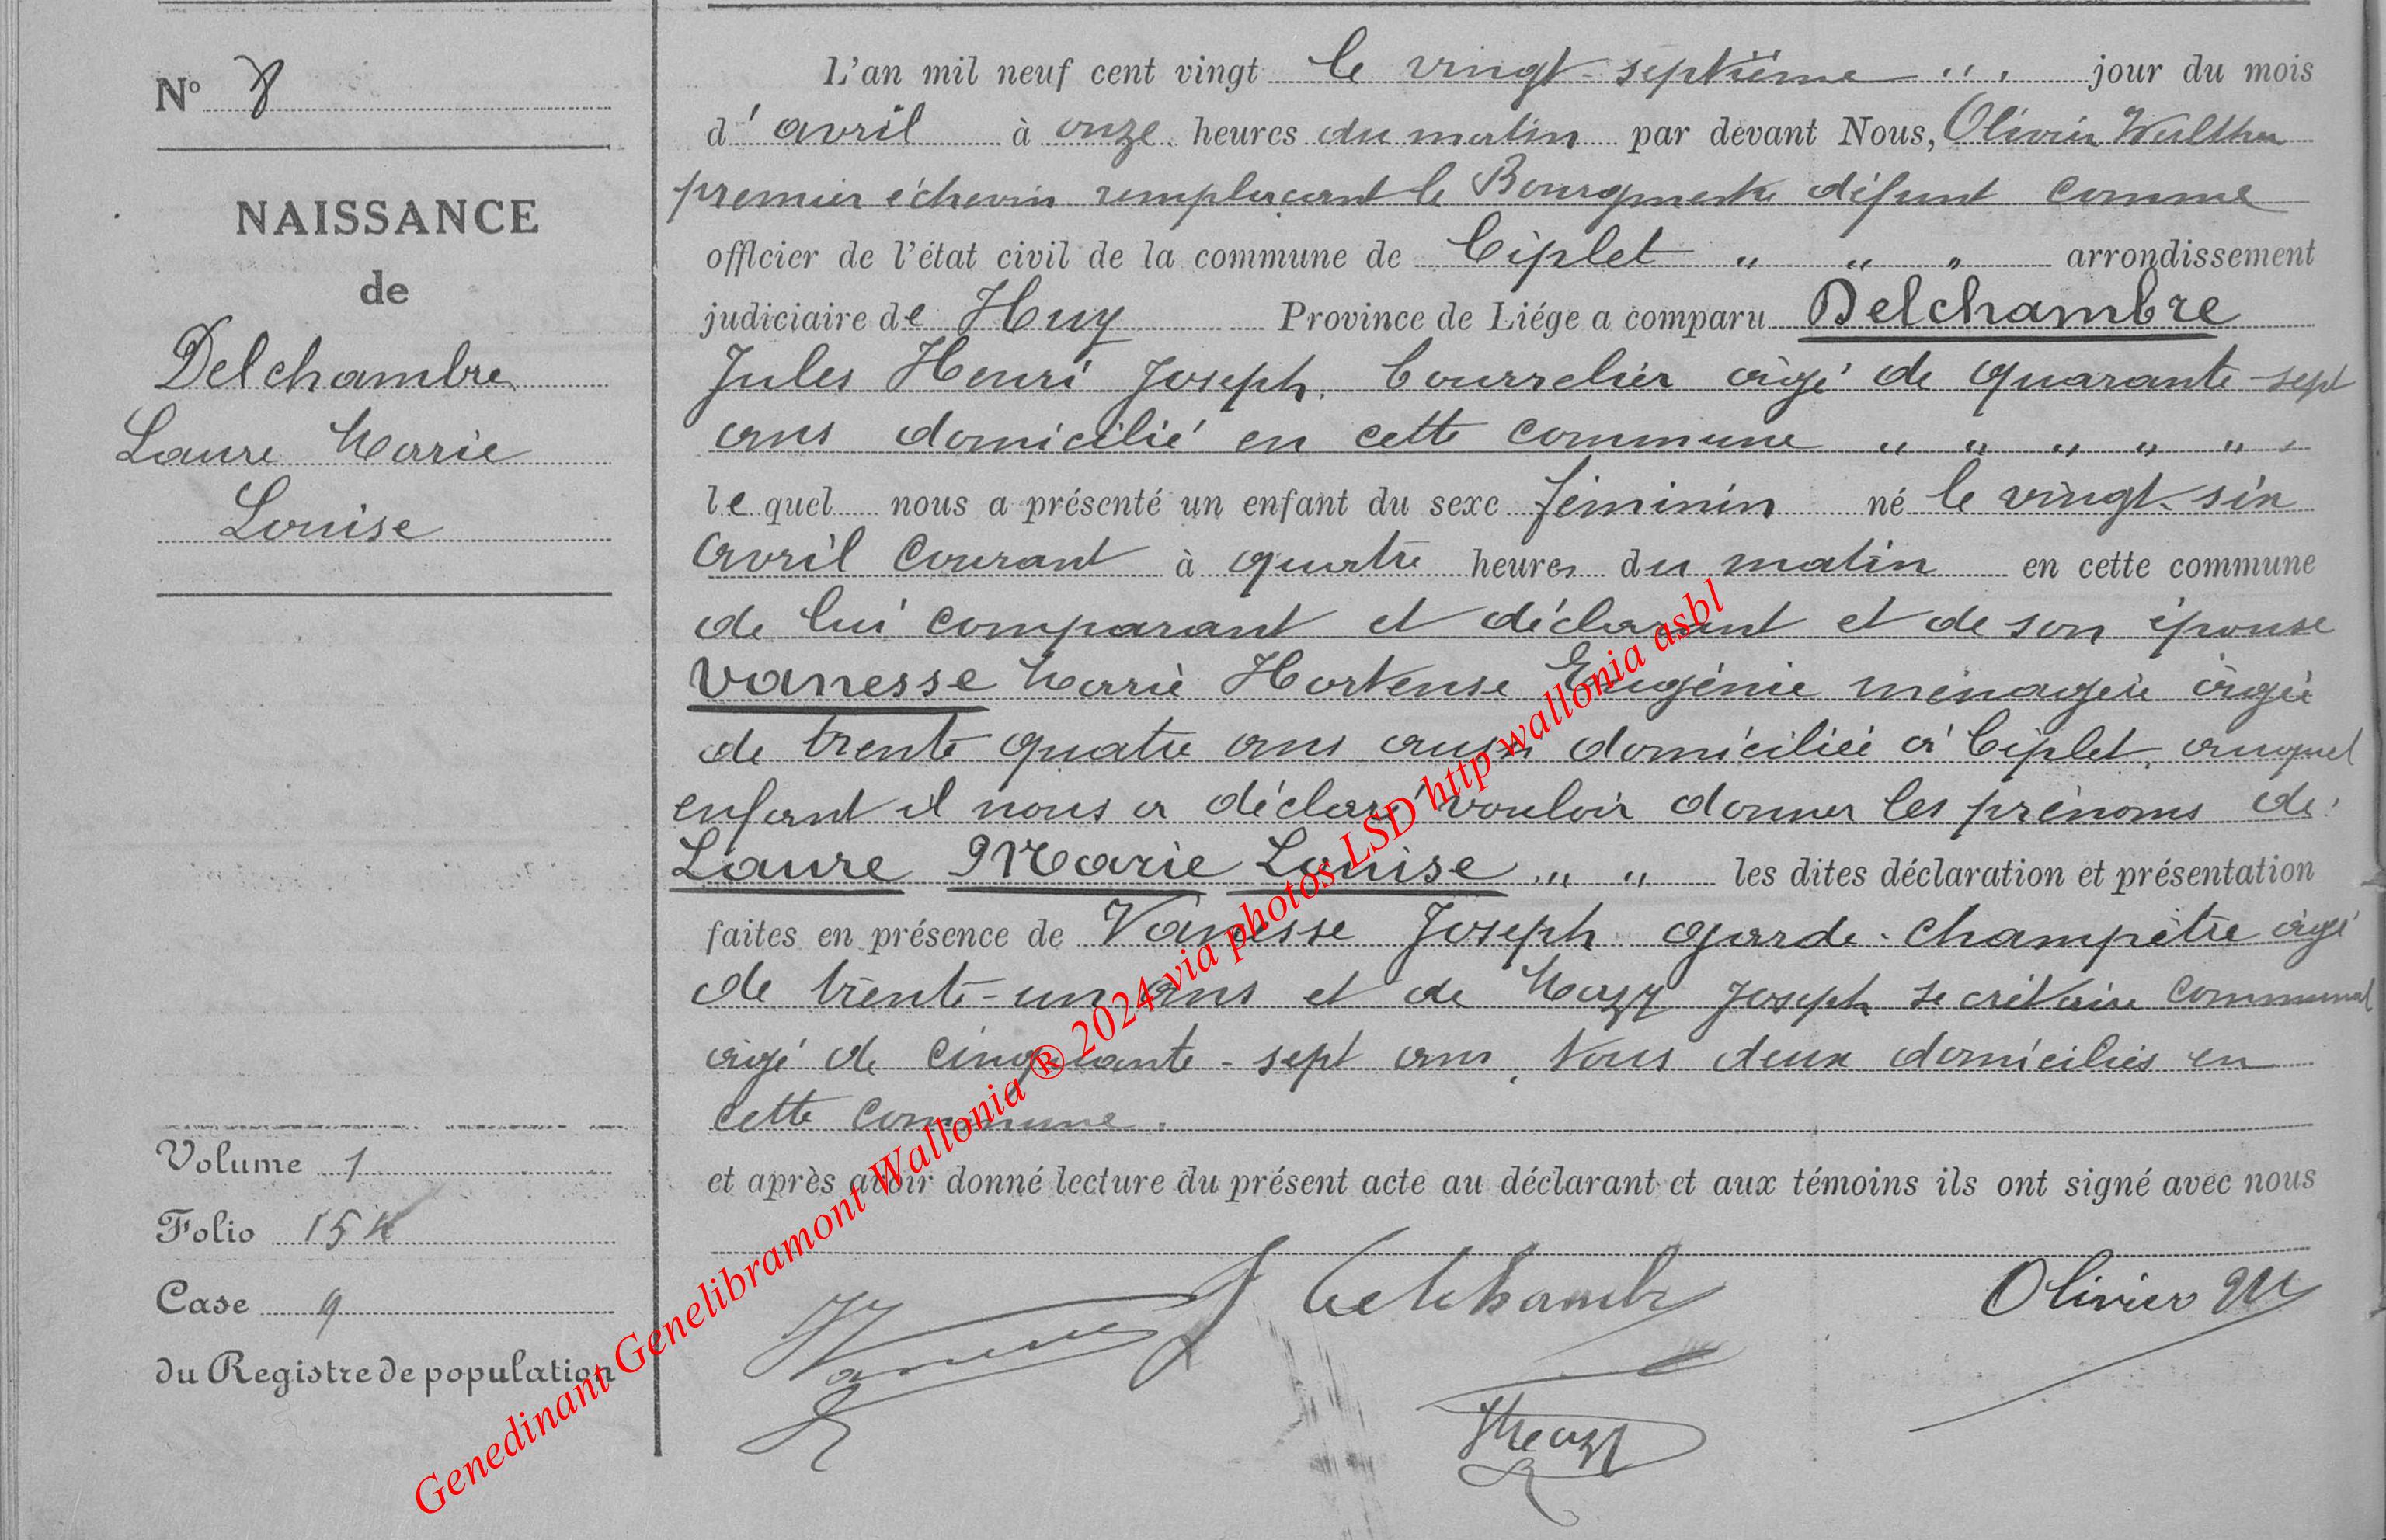 N° 8
NAISSANCE
de
Delchambre
Laure Marie
Louise
Volume 1
Folio 154
Case 9
du Registre de population
L'an mil neuf cent vingt le vingt-septième " " jour du mois
d'avril à onze heures du matin par devant Nous, Olivier Walther
premier échevin remplaçant le Bourgmestre défunt comme
officier de l'état civil de la commune de Ciplet " " " arrondissement
judiciaire de Huy Province de Liége a comparu Delchambre
Jules Henri Joseph, Bourrelier âgé de quarante-sept
ans domicilié en cette commune " " " " "
lequel nous a présenté un enfant du sexe féminin né le vingt-six
avril courant à quatre heures du matin en cette commune
de lui comparant et déclarant et de son épouse
Vanesse Marie Hortense Eugénie ménagère âgée
de trente quatre ans aussi domiciliée à Ciplet, auquel
enfant il nous a déclaré vouloir donner les prénoms de:
Laure Marie Louise " " les dites déclaration et présentation
faites en présence de Vanesse Joseph garde-champêtre âgé
de trente-un ans et de Mazy Joseph secrétaire communal
âgé de cinquante-sept ans, tous deux domiciliés en
cette commune.
et après avoir donné lecture du présent acte au déclarant et aux témoins ils ont signé avec nous
J Delchambre Olivier W
J Vanesse
J Mazy
Genedinant Genelibramont Wallonia ® 2024 via photos LSD http wallonia asbl